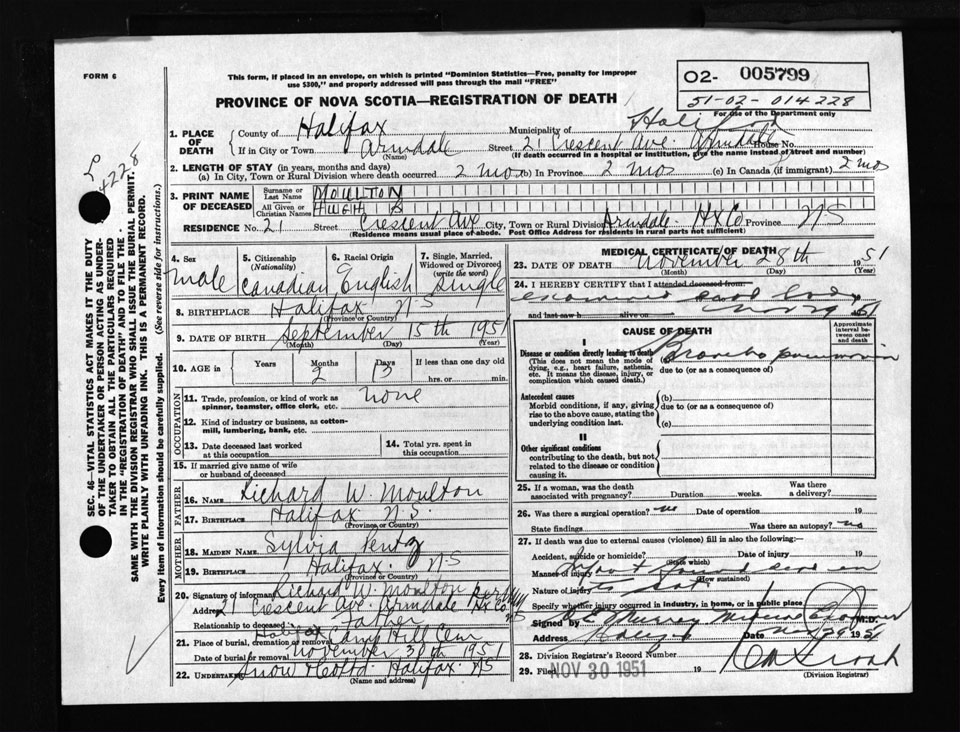 FORM 6
This form, if placed in an envelope, on which is printed "Dominion Statistics—Free, penalty for improper
use $300," and properly addressed will pass through the mail "FREE"
O2- 005799
51-02-014228
For use of the Department only
PROVINCE OF NOVA SCOTIA—REGISTRATION OF DEATH
1. PLACE OF DEATH
County of Halifax Municipality of Halifax
If in City or Town Armdale (Name) Street 21 Crescent Ave. Armdale House No.
(If death occurred in a hospital or institution, give the name instead of street and number)
2. LENGTH OF STAY (in years, months and days)
(a) In City, Town or Rural Division where death occurred 2 mos (b) In Province 2 mos (c) In Canada (if immigrant) 2 mos
3. PRINT NAME OF DECEASED
Surname or Last Name MOULTON
All Given or Christian Names HUGH B
RESIDENCE No. 21 Street Crescent Ave City, Town or Rural Division Armdale Hx Co Province N S
(Residence means usual place of abode. Post Office Address for residents in rural parts not sufficient)
4. Sex male
5. Citizenship (Nationality) Canadian
6. Racial Origin English
7. Single, Married, Widowed or Divorced (write the word) Single
8. BIRTHPLACE Halifax N S
(Province or Country)
9. DATE OF BIRTH September 15th 1951
(Month) (Day) (Year)
10. AGE in Years Months 2 Days 13 If less than one day old hrs. or min.
OCCUPATION
11. Trade, profession, or kind of work as spinner, teamster, office clerk, etc. none
12. Kind of industry or business, as cotton-mill, lumbering, bank, etc.
13. Date deceased last worked at this occupation
14. Total yrs. spent in this occupation
15. If married give name of wife or husband of deceased
FATHER
16. NAME Richard W. Moulton
17. BIRTHPLACE Halifax N.S.
(Province or Country)
MOTHER
18. MAIDEN NAME Sylvia
19. BIRTHPLACE Halifax N S
(Province or Country)
20. Signature of informant Richard W. Moulton
Address 21 Crescent Ave. Armdale Hx Co. NS
Relationship to deceased Father
21. Place of burial, cremation or removal Halifax Camp Hill Cem
Date of burial or removal November 30th 1951
22. UNDERTAKER Snow & Co Ltd. Halifax. N S
(Name and address)
MEDICAL CERTIFICATE OF DEATH
23. DATE OF DEATH November 28th 1951
(Month) (Day) (Year)
24. I HEREBY CERTIFY that I attended deceased from:
examined dead body
and last saw h alive on Nov 29 1951
CAUSE OF DEATH
Approximate interval between onset and death
I
Disease or condition directly leading to death
(This does not mean the mode of dying, e.g., heart failure, asthenia, etc. It means the disease, injury, or complication which caused death.)
Broncho pneumonia
due to (or as a consequence of)
Antecedent causes
Morbid conditions, if any, giving rise to the above cause, stating the underlying condition last.
(b)
due to (or as a consequence of)
(c)
II
Other significant conditions
contributing to the death, but not related to the disease or condition causing it.
25. If a woman, was the death associated with pregnancy? Duration weeks. Was there a delivery?
26. Was there a surgical operation? no Date of operation 19
State findings Was there an autopsy? no
27. If death was due to external causes (violence) fill in also the following:—
Accident, suicide or homicide? Date of injury 19
(State which)
Manner of injury Infant found dead in
(How sustained)
Nature of injury its cot
Specify whether injury occurred in industry, in home, or in public place
Signed by E Murray M.D.
Address Halifax Date Nov 29 1951
28. Division Registrar's Record Number
29. Filed NOV 30 1951 19
(Division Registrar)
SEC. 46—VITAL STATISTICS ACT MAKES IT THE DUTY
OF THE UNDERTAKER OR PERSON ACTING AS UNDER-
TAKER TO OBTAIN ALL THE PARTICULARS REQUIRED
IN THE "REGISTRATION OF DEATH" AND TO FILE THE
SAME WITH THE DIVISION REGISTRAR WHO SHALL ISSUE THE BURIAL PERMIT.
WRITE PLAINLY WITH UNFADING INK. THIS IS A PERMANENT RECORD.
Every item of information should be carefully supplied. (See reverse side for instructions.)